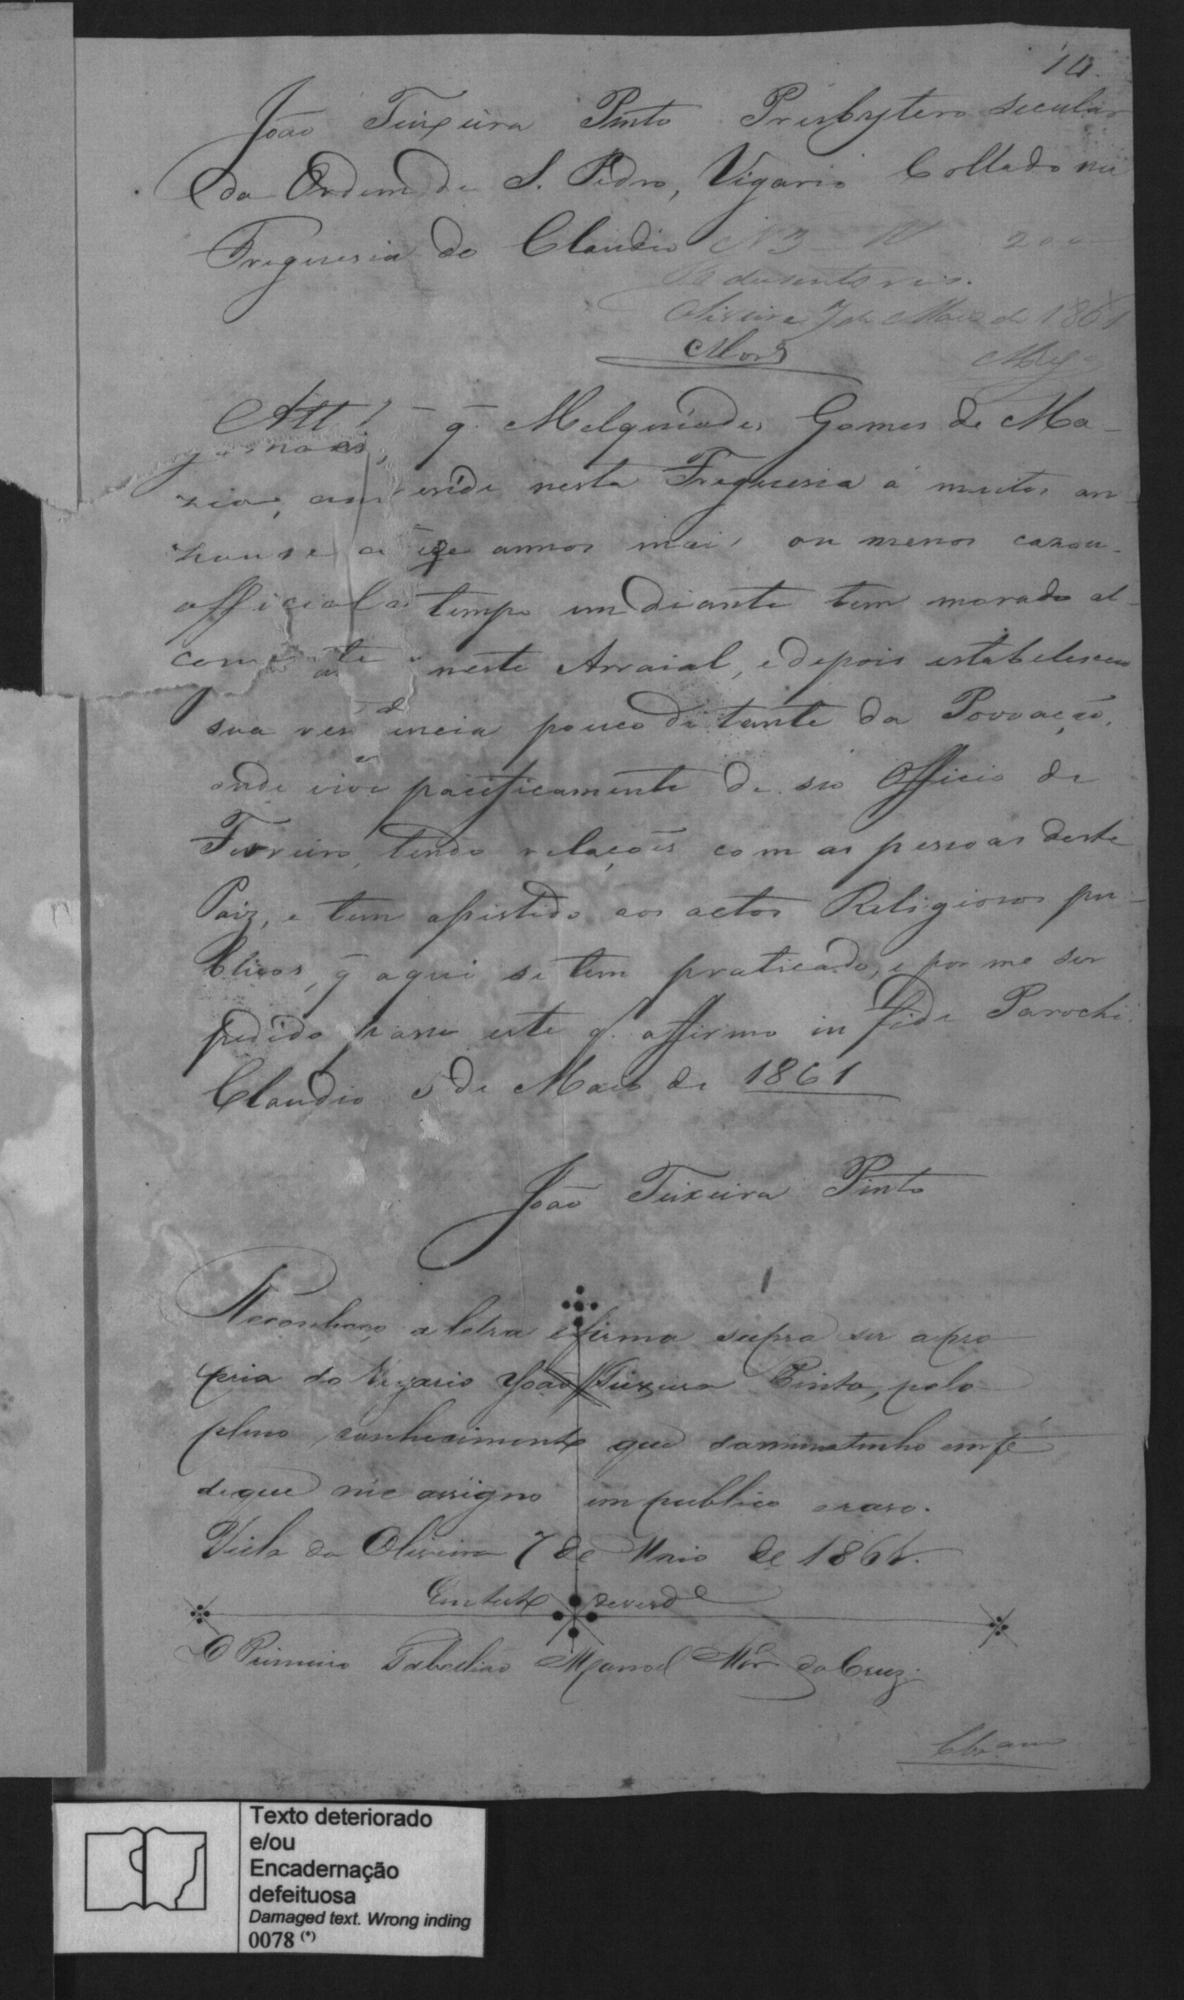 14.
João Teixeira Pinto Presbytero secular
da Ordem de S. Pedro, Vigario Collado na
Freguesia do Claudio N 3 200
dusentos reis.
Oliveira 7 de Maio de 1861
Att q̃ Melquiades Gomes de Ma-
nesta Freguesia á muitos an
annos mais ou menos cazou-
official tempo em diante tem morado al-
neste Arraial, e depois estabeleceu
sua res dencia pouco distante da Povoação,
onde vive pacificamente de seo Officio de
Ferreiro, tendo relações com as pessoas deste
Paiz, e tem assistido aos actos Religiosos pu-
blicos, q̃ aqui se tem praticado, e por me ser
pedido passo este q. affirmo in fide Parochi.
Claudio 5 de Maio de 1861
João Teixeira Pinto
Reconheço a letra e firma supra ser a pro
pria do Vigario João Teixeira Pinto, pelo
pleno conhecimento que da mesma tenho em fé
de que me assigno em publico e raso.
Villa da Oliveira 7 de Maio de 1861.
Em test de verd.e
O Primeiro Tabelião Manoel da Cruz
Texto deteriorado
e/ou
Encadernação
defeituosa
Damaged text. Wrong inding
0078 (*)